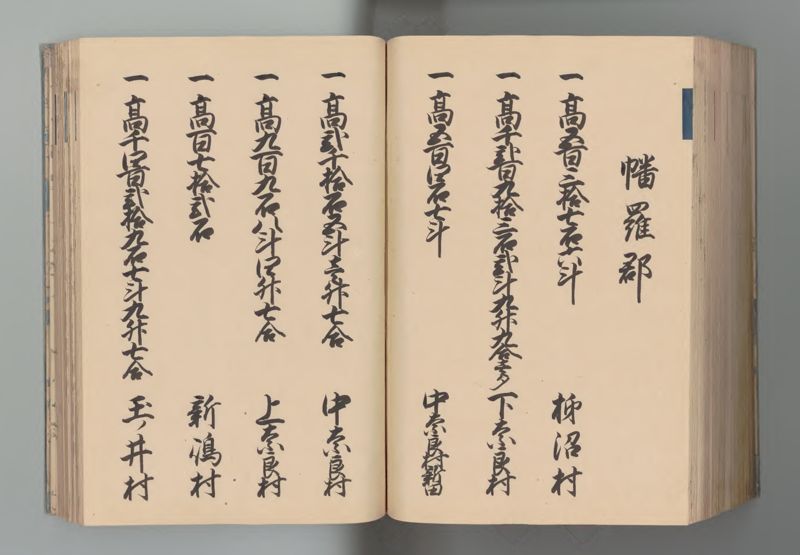 幡羅郡
一 高五百三拾七石六斗 柿沼村
一 高千弐百九拾三石弐斗九升九合 下奈良村
一 高五百四石七斗 中奈良村新田
一 高弐千拾石五斗 升七合 中奈良村
一 高九百九石八斗四升七合 上奈良村
一 高百七拾弐石 新嶋村
一 高千四百弐拾九石七斗九升七合 玉ノ井村